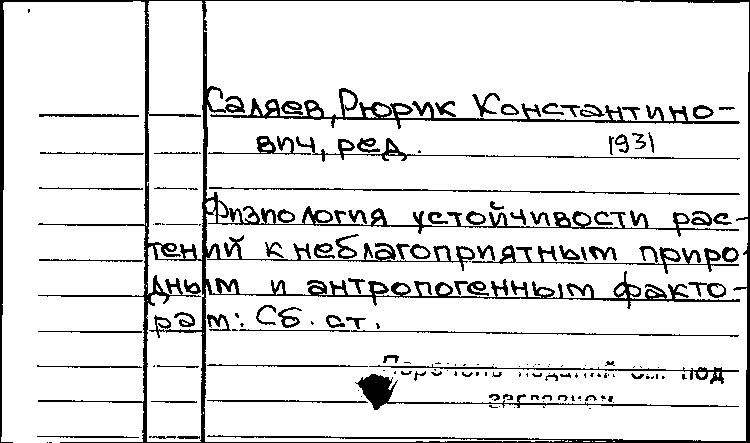 Саляев, Рюрик Константино-
вич, ред.   1931
Физиология устойчивости рас-
тений к неблагоприятным приро
дным и антропогенным факто-
рам: Сб. ст.
Перечень изданий см. под
заглавием